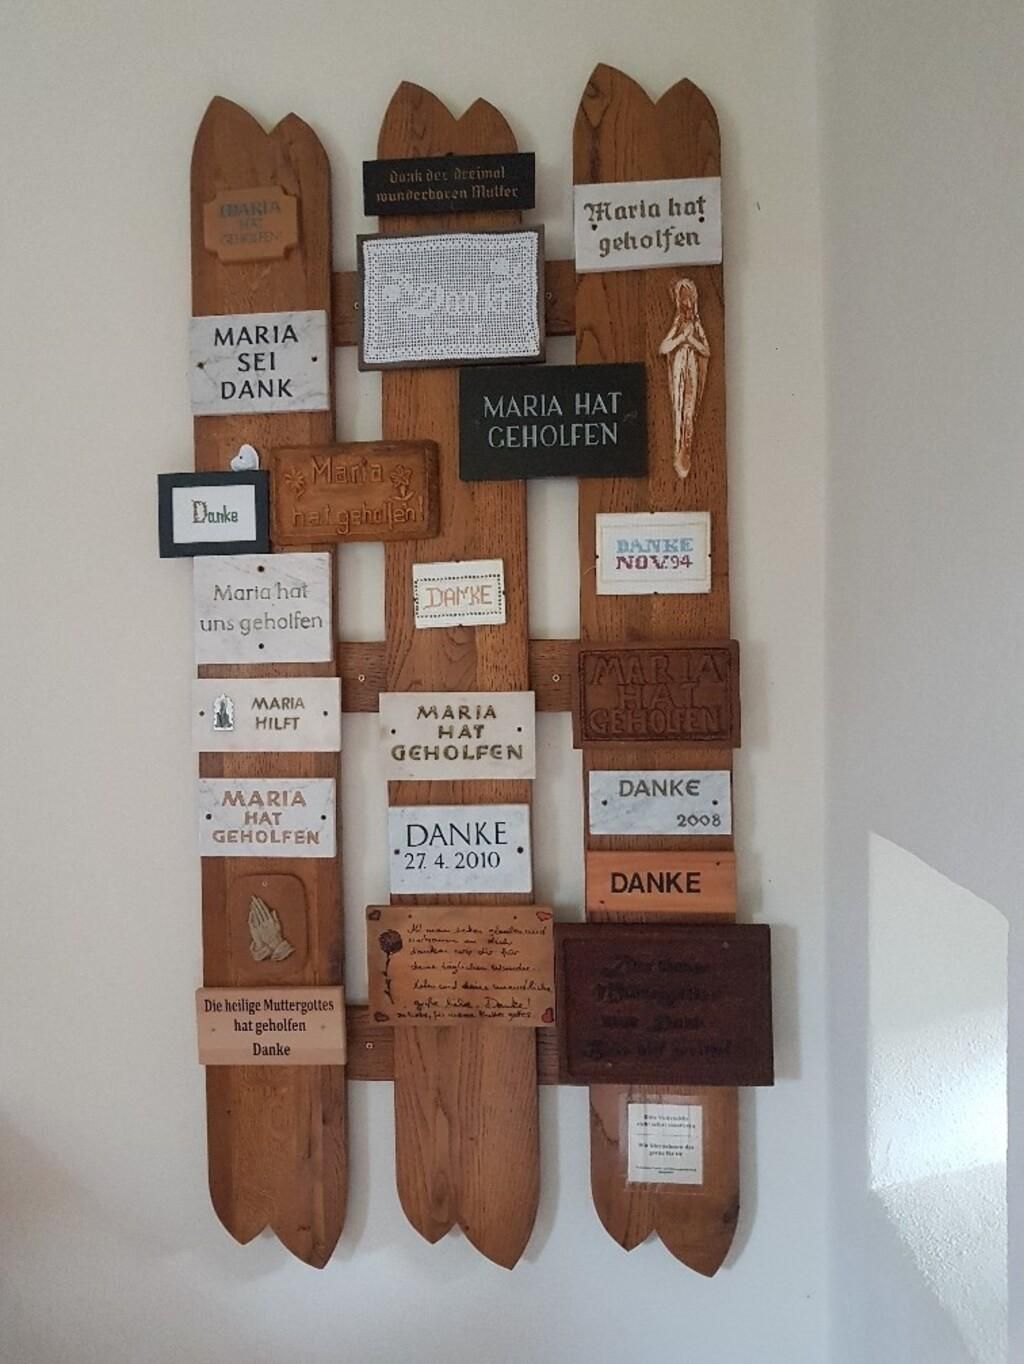 MARIA
HAT
GEHOLFEN
MARIA
SEI
DANK
Danke
Maria
hat geholfen!
Maria hat
uns geholfen
MARIA
HILFT
MARIA
HAT
GEHOLFEN
Die heilige Muttergottes
hat geholfen
Danke
Dank der dreimal
wunderbaren Mutter
Danke
MARIA HAT
GEHOLFEN
DANKE
MARIA
HAT
GEHOLFEN
DANKE
27. 4. 2010
danken wir dir für
deine täglichen Wunder
große Liebe. Danke!
Maria hat
geholfen
DANKE
NOV.94
MARIA
HAT
GEHOLFEN
DANKE
2008
DANKE